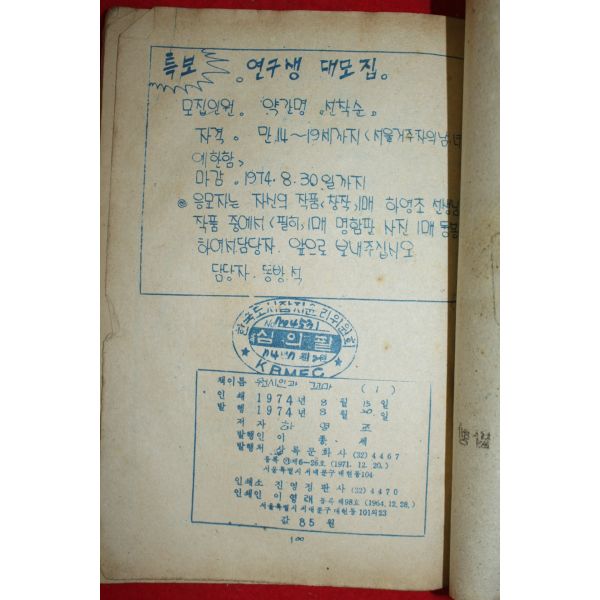 특보 。연구생 대모집。
모집인원 。 약간명 。선착순。
자격 。 만 14～19세까지 (서울거주자의 남
에 한함)
마감 。1974.8.30.일까지
◎ 응모자는 자신의 작품(창작)1매 하영조 선생님
작품 중에서 (필히)1매 명함판 사진 1매 동봉
하여서 담당자 앞으로 보내주십시오
담당자. 동방 석
한국도서잡지윤리위원회
심의필
KBMEC
책이름 원시인과 꼬마 (1)
인쇄 1974년 8월 15일
발행 1974년 8월 20일
저자 하영조
발행인 이종세
발행처 삼록문화사 (32) 4467
등록 ㉮제6-26호 (1971. 12. 20.)
서울특별시 서대문구 대현동104
인쇄소 진영정판사 (32) 4470
인쇄인 이영래 등록 제98호 (1964. 12. 28.)
서울특별시 서대문구 대현동 101의23
값 85원
100